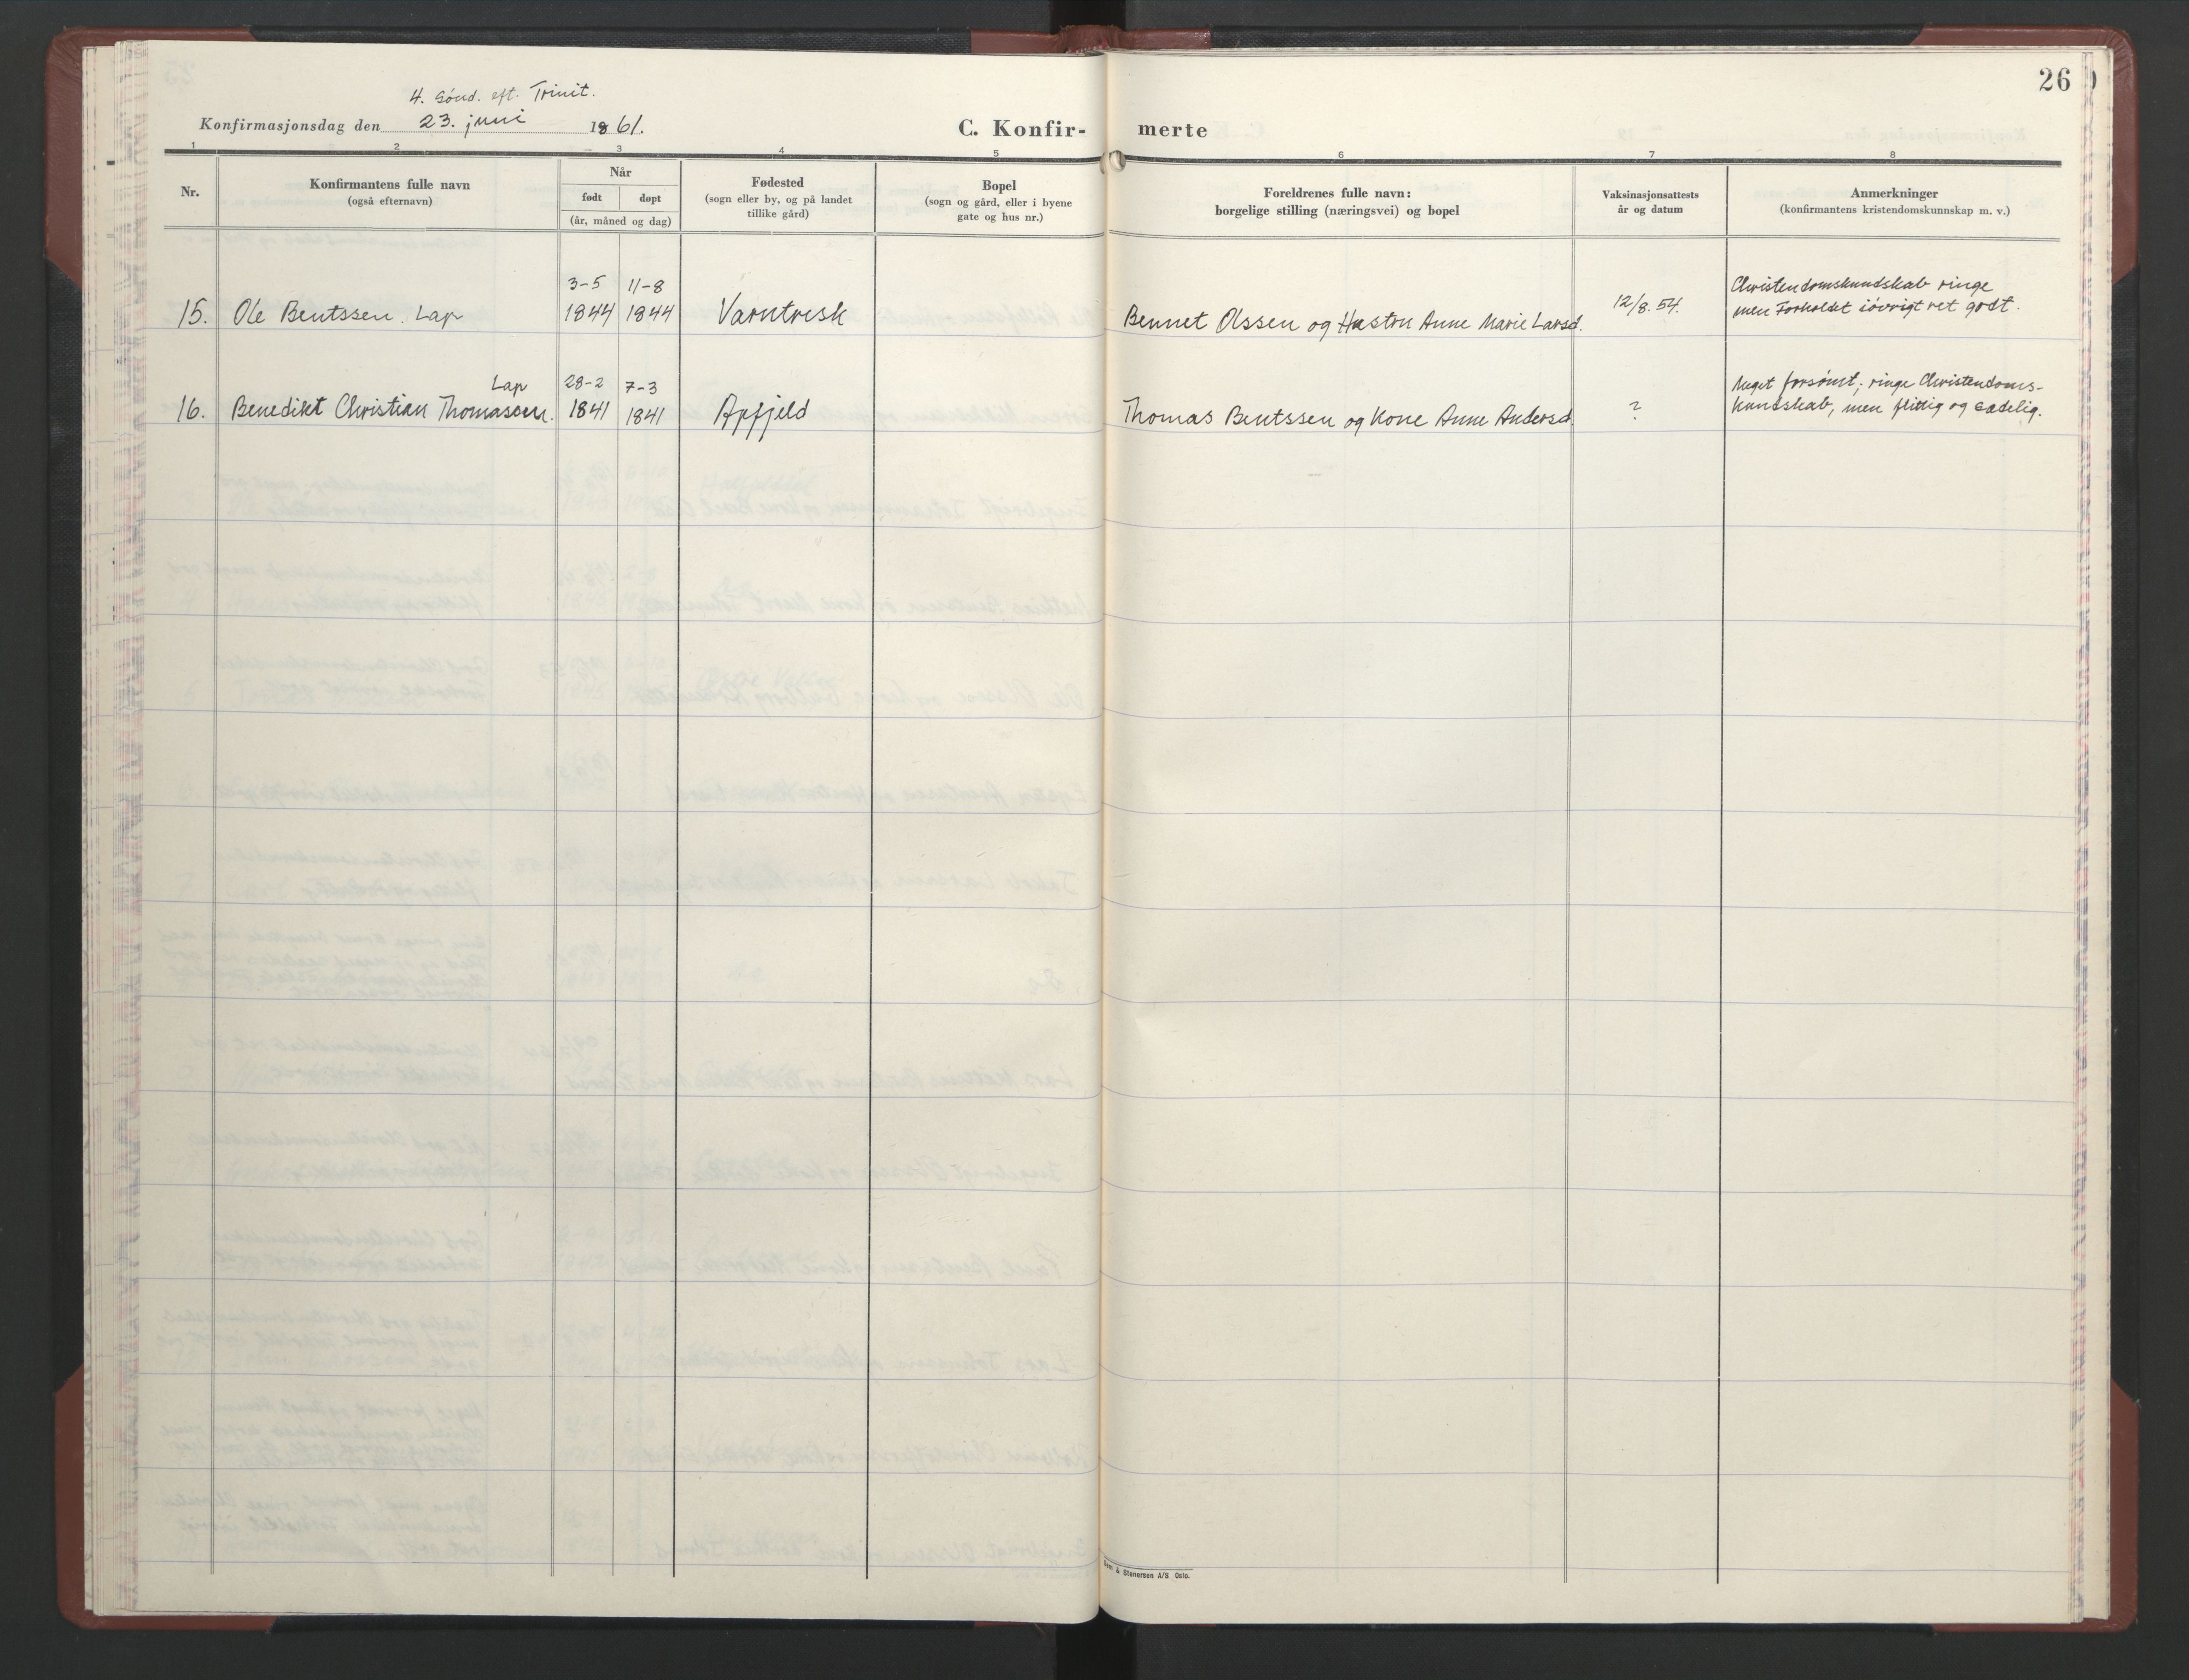 26
4. Sönd. eft. Trinit.
Konfirmasjonsdag den 23. juni 1861.
C. Konfir-merte
1 2 3 4 5 6 7 8
Nr.
Konfirmantens fulle navn
(også efternavn)
Når
født døpt
(år, måned og dag)
Fødested
(sogn eller by, og på landet
tillike gård)
Bopel
(sogn og gård, eller i byene
gate og hus nr.)
Foreldrenes fulle navn:
borgelige stilling (næringsvei) og bopel
Vaksinasjonsattests
år og datum
Anmerkninger
(konfirmantens kristendomskunnskap m. v.)
3-5 11-8
15. Ole Bentssen. Lap 1844 1844 Varntresk Bennet Olssen og Hustru Anne Marie Larsd. 12/8. 54.
Christendomskundskab ringe
men Forholdet iövrigt ret godt.
Lap 28-2 7-3
16. Benedikt Christian Thomassen. 1841 1841 Apfjeld Thomas Bentssen og Kone Anne Andersd. ?
Meget forsömt; ringe Christendoms-
kundskab, men flittig og sædelig.
& Stenersen A/S Oslo.